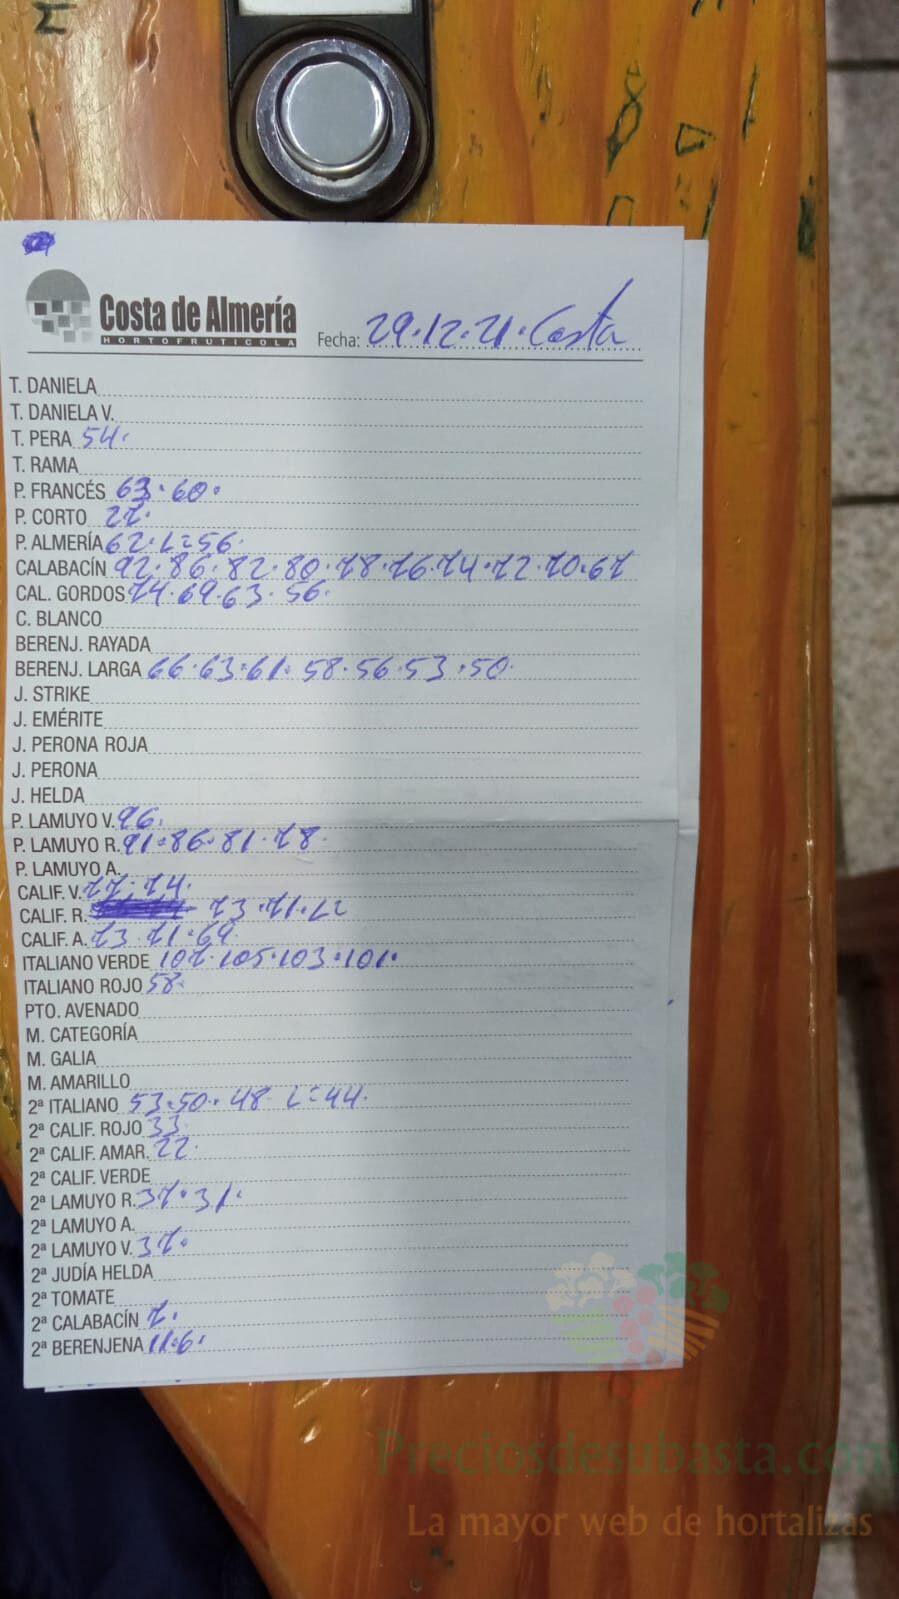 Costa de Almería
HORTOFRUTICOLA
Fecha: 29.12.21. Costa
T. DANIELA
T. DANIELA V.
T. PERA 54.
T. RAMA
P. FRANCÉS 63.60.
P. CORTO 27.
P. ALMERÍA 62.L=56.
CALABACÍN 92.86.82.80.78.76.74.72.70.67
CAL. GORDOS 74.69.63.56.
C. BLANCO
BERENJ. RAYADA
BERENJ. LARGA 66.63.61.58.56.53.50.
J. STRIKE
J. EMÉRITE
J. PERONA ROJA
J. PERONA
J. HELDA
P. LAMUYO V. 96.
P. LAMUYO R. 91.86.81.78.
P. LAMUYO A.
CALIF. V. 77.74.
CALIF. R. 73.71.L=
CALIF. A. 73.71.69.
ITALIANO VERDE 107.105.103.101.
ITALIANO ROJO 58.
PTO. AVENADO
M. CATEGORÍA
M. GALIA
M. AMARILLO
2ª ITALIANO 53.50.48 L=44.
2ª CALIF. ROJO 33.
2ª CALIF. AMAR. 22.
2ª CALIF. VERDE
2ª LAMUYO R. 37.31.
2ª LAMUYO A.
2ª LAMUYO V. 37.
2ª JUDÍA HELDA
2ª TOMATE
2ª CALABACÍN 7.
2ª BERENJENA 11.6.
Preciosdesubasta.com
La mayor web de hortalizas